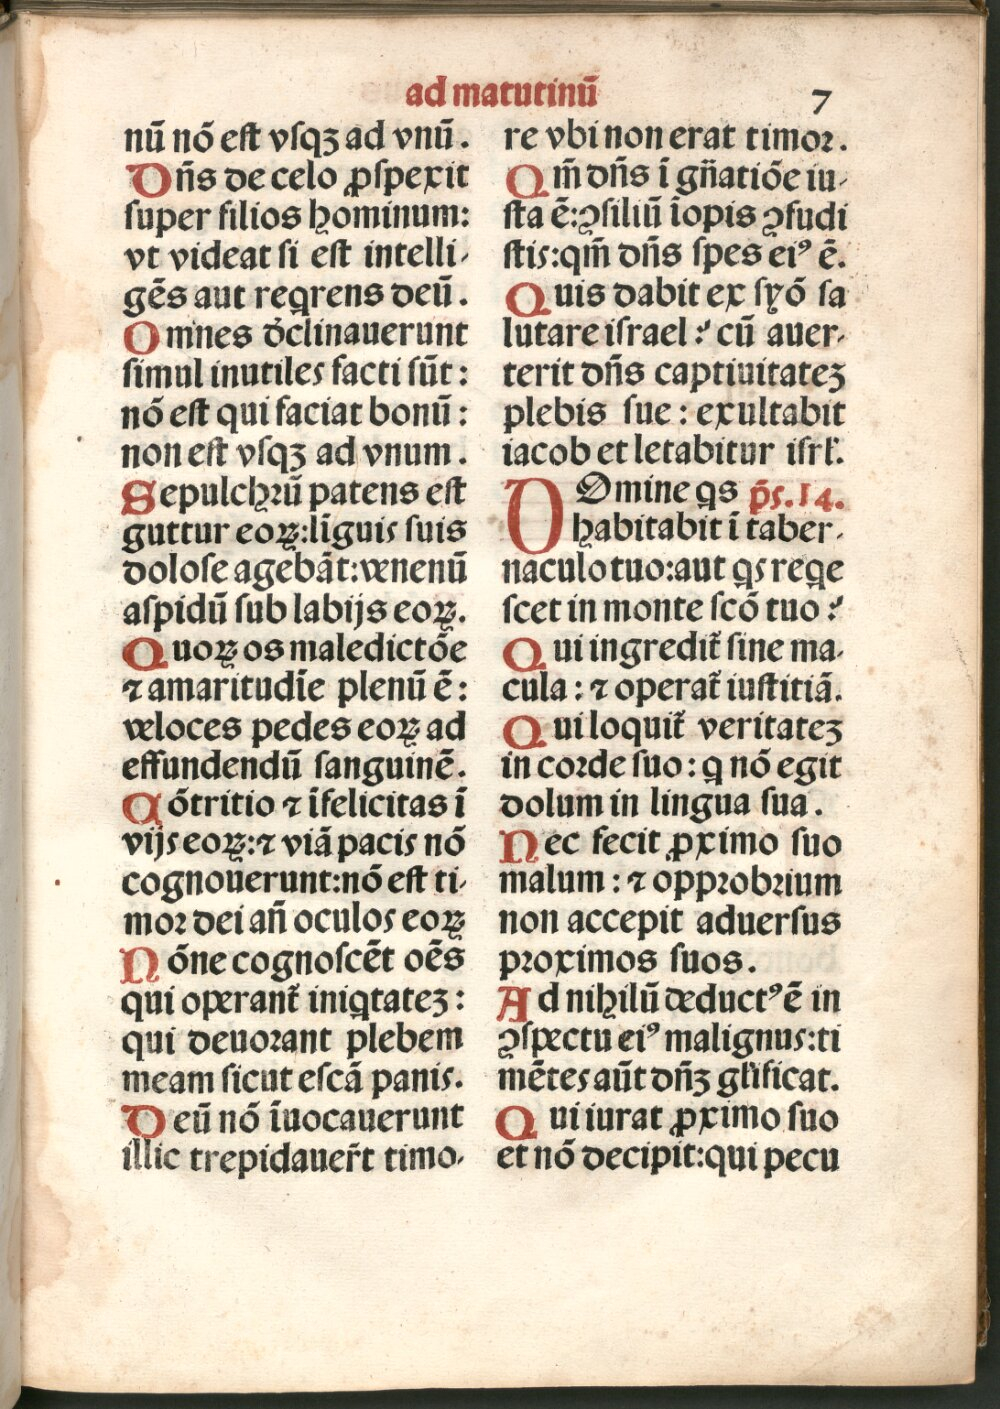 ad matutinū
7
nū nō est vsqꝫ ad vnū.
Dn̄s de celo ꝓspexit
super filios hominum:
vt videat si est intelli-
gēs aut reqrens deū.
Omnes d̄clinauerunt
simul inutiles facti sūt:
nō est qui faciat bonū:
non est vsqꝫ ad vnum.
Sepulchꝛū patens est
guttur eoꝝ: līguis suis
dolose agebāt: venenū
aspidū sub labijs eoꝝ.
Quoꝝ os maledictōe
⁊ amaritudīe plenū ē:
veloces pedes eoꝝ ad
effundendū sanguinē.
Cōtritio ⁊ īfelicitas ī
vijs eoꝝ: ⁊ viā pacis nō
cognouerunt: nō est ti-
moꝛ dei an̄ oculos eoꝝ
Nōne cognoscēt oēs
qui operant̄ iniqtateꝫ:
qui deuoꝛant plebem
meam sicut escā panis.
Deū nō īuocauerunt
illic trepidauer̄t timo-
re vbi non erat timoꝛ.
Qm̄ dn̄s ī gn̄atiōe iu-
sta ē: ꝯsiliū īopis ꝯfudi
stis: qm̄ dn̄s spes eiꝰ ē.
Quis dabit ex syō sa
lutare israel? cū auer-
terit dn̄s captiuitateꝫ
plebis sue: exultabit
iacob et letabitur isrl̄.
DOmine qs p̄s. 14.
habitabit ī taber-
naculo tuo: aut qs reqe
scet in monte scō tuo?
Qui ingredit̄ sine ma-
cula: ⁊ operat̄ iustitiā.
Qui loquit̄ veritateꝫ
in coꝛde suo: q nō egit
dolum in lingua sua.
Nec fecit ꝓximo suo
malum: ⁊ oppꝛobꝛium
non accepit aduersus
pꝛoximos suos.
Ad nihilū deductꝰ ē in
ꝯspectu eiꝰ malignus: ti
mētes aūt dn̄ꝫ gl̄ificat.
Qui iurat ꝓximo suo
et nō decipit: qui pecu